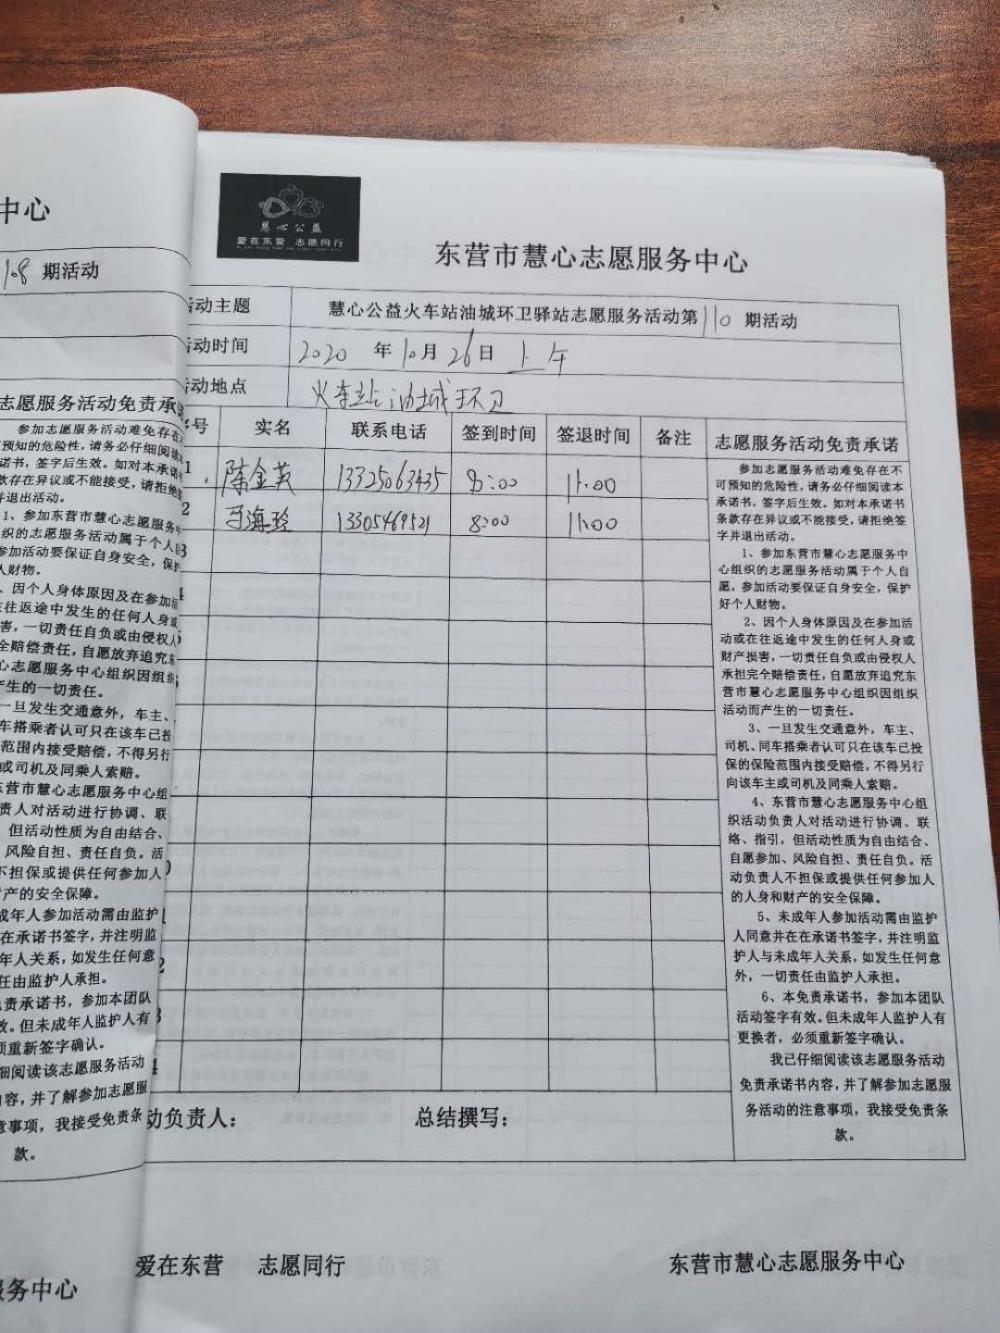 中心
108 期活动
志愿服务活动免责承
参加志愿服务活动难免存在
可预知的危险性,请务必仔细阅读
诺书,签字后生效。如对本承诺
款存在异议或不能接受,请拒绝
并退出活动。
1、参加东营市慧心志愿服务
织的志愿服务活动属于个人
参加活动要保证自身安全,保护
人财物。
、因个人身体原因及在参加
在往返途中发生的任何人身或
害,一切责任自负或由侵权人
全赔偿责任,自愿放弃追究东
心志愿服务中心组织因组织
产生的一切责任。
一旦发生交通意外,车主、
车搭乘者认可只在该车已投
范围内接受赔偿,不得另行
或司机及同乘人索赔。
东营市慧心志愿服务中心组
责人对活动进行协调、联
但活动性质为自由结合、
风险自担、责任自负。活
不担保或提供任何参加人
财产的安全保障。
成年人参加活动需由监护
在在承诺书签字,并注明监
年人关系,如发生任何意
任由监护人承担。
免责承诺书,参加本团队
效。但未成年人监护人有
须重新签字确认。
细阅读该志愿服务活动
内容,并了解参加志愿服
意事项,我接受免责条
款。
服务中心
慧心公益
爱在东营 志愿同行
东营市慧心志愿服务中心
活动主题 慧心公益火车站油城环卫驿站志愿服务活动第110期活动
活动时间 2020 年 10月 26日 上午
活动地点 火车站油城环卫
序号 实名 联系电话 签到时间 签退时间 备注 志愿服务活动免责承诺
1 陈金英 13325063435 8:00 11:00
2 海玲 13305469521 8:00 11:00
3
4
参加志愿服务活动难免存在不
可预知的危险性,请务必仔细阅读本
承诺书,签字后生效。如对本承诺书
条款存在异议或不能接受,请拒绝签
字并退出活动。
1、参加东营市慧心志愿服务中
心组织的志愿服务活动属于个人自
愿,参加活动要保证自身安全,保护
好个人财物。
2、因个人身体原因及在参加活
动或在往返途中发生的任何人身或
财产损害,一切责任自负或由侵权人
承担完全赔偿责任,自愿放弃追究东
营市慧心志愿服务中心组织因组织
活动而产生的一切责任。
3、一旦发生交通意外,车主、
司机、同车搭乘者认可只在该车已投
保的保险范围内接受赔偿,不得另行
向该车主或司机及同乘人索赔。
4、东营市慧心志愿服务中心组
织活动负责人对活动进行协调、联
络、指引,但活动性质为自由结合、
自愿参加、风险自担、责任自负。活
动负责人不担保或提供任何参加人
的人身和财产的安全保障。
5、未成年人参加活动需由监护
人同意并在在承诺书签字,并注明监
护人与未成年人关系,如发生任何意
外,一切责任由监护人承担。
6、本免责承诺书,参加本团队
活动签字有效。但未成年人监护人有
更换者,必须重新签字确认。
我已仔细阅读该志愿服务活动
免责承诺书内容,并了解参加志愿服
务活动的注意事项,我接受免责条
款。
动负责人: 总结撰写:
爱在东营 志愿同行 东营市慧心志愿服务中心